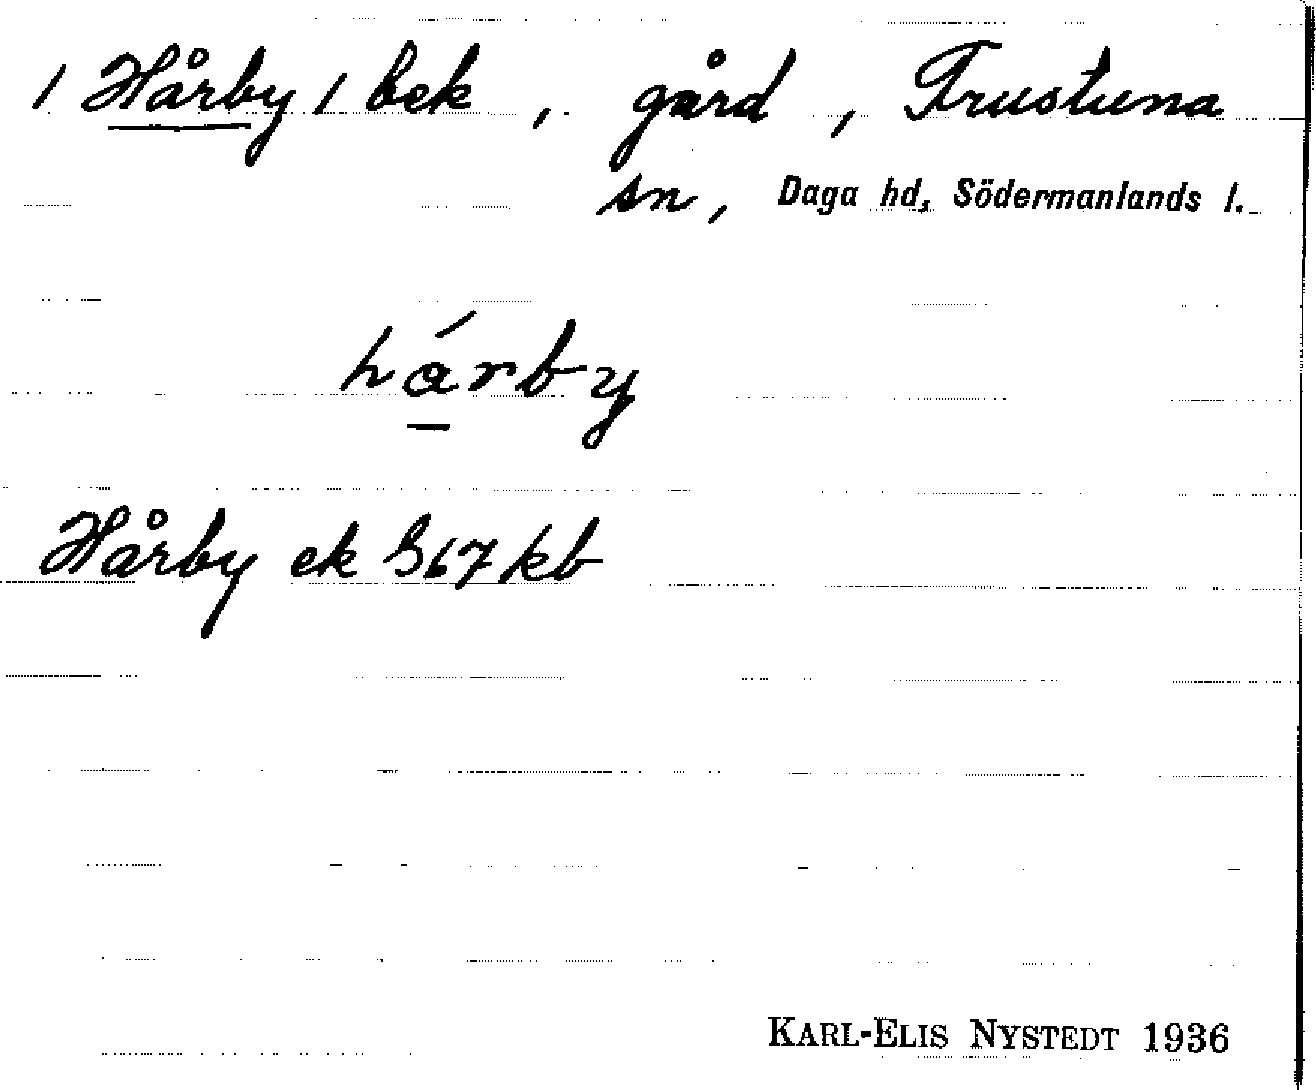 / Hårby / bek, gård, Frustuna
sn, Daga hd, Södermanlands l.
hárby
Hårby ek 367 kb
KARL-ELIS NYSTEDT 1936